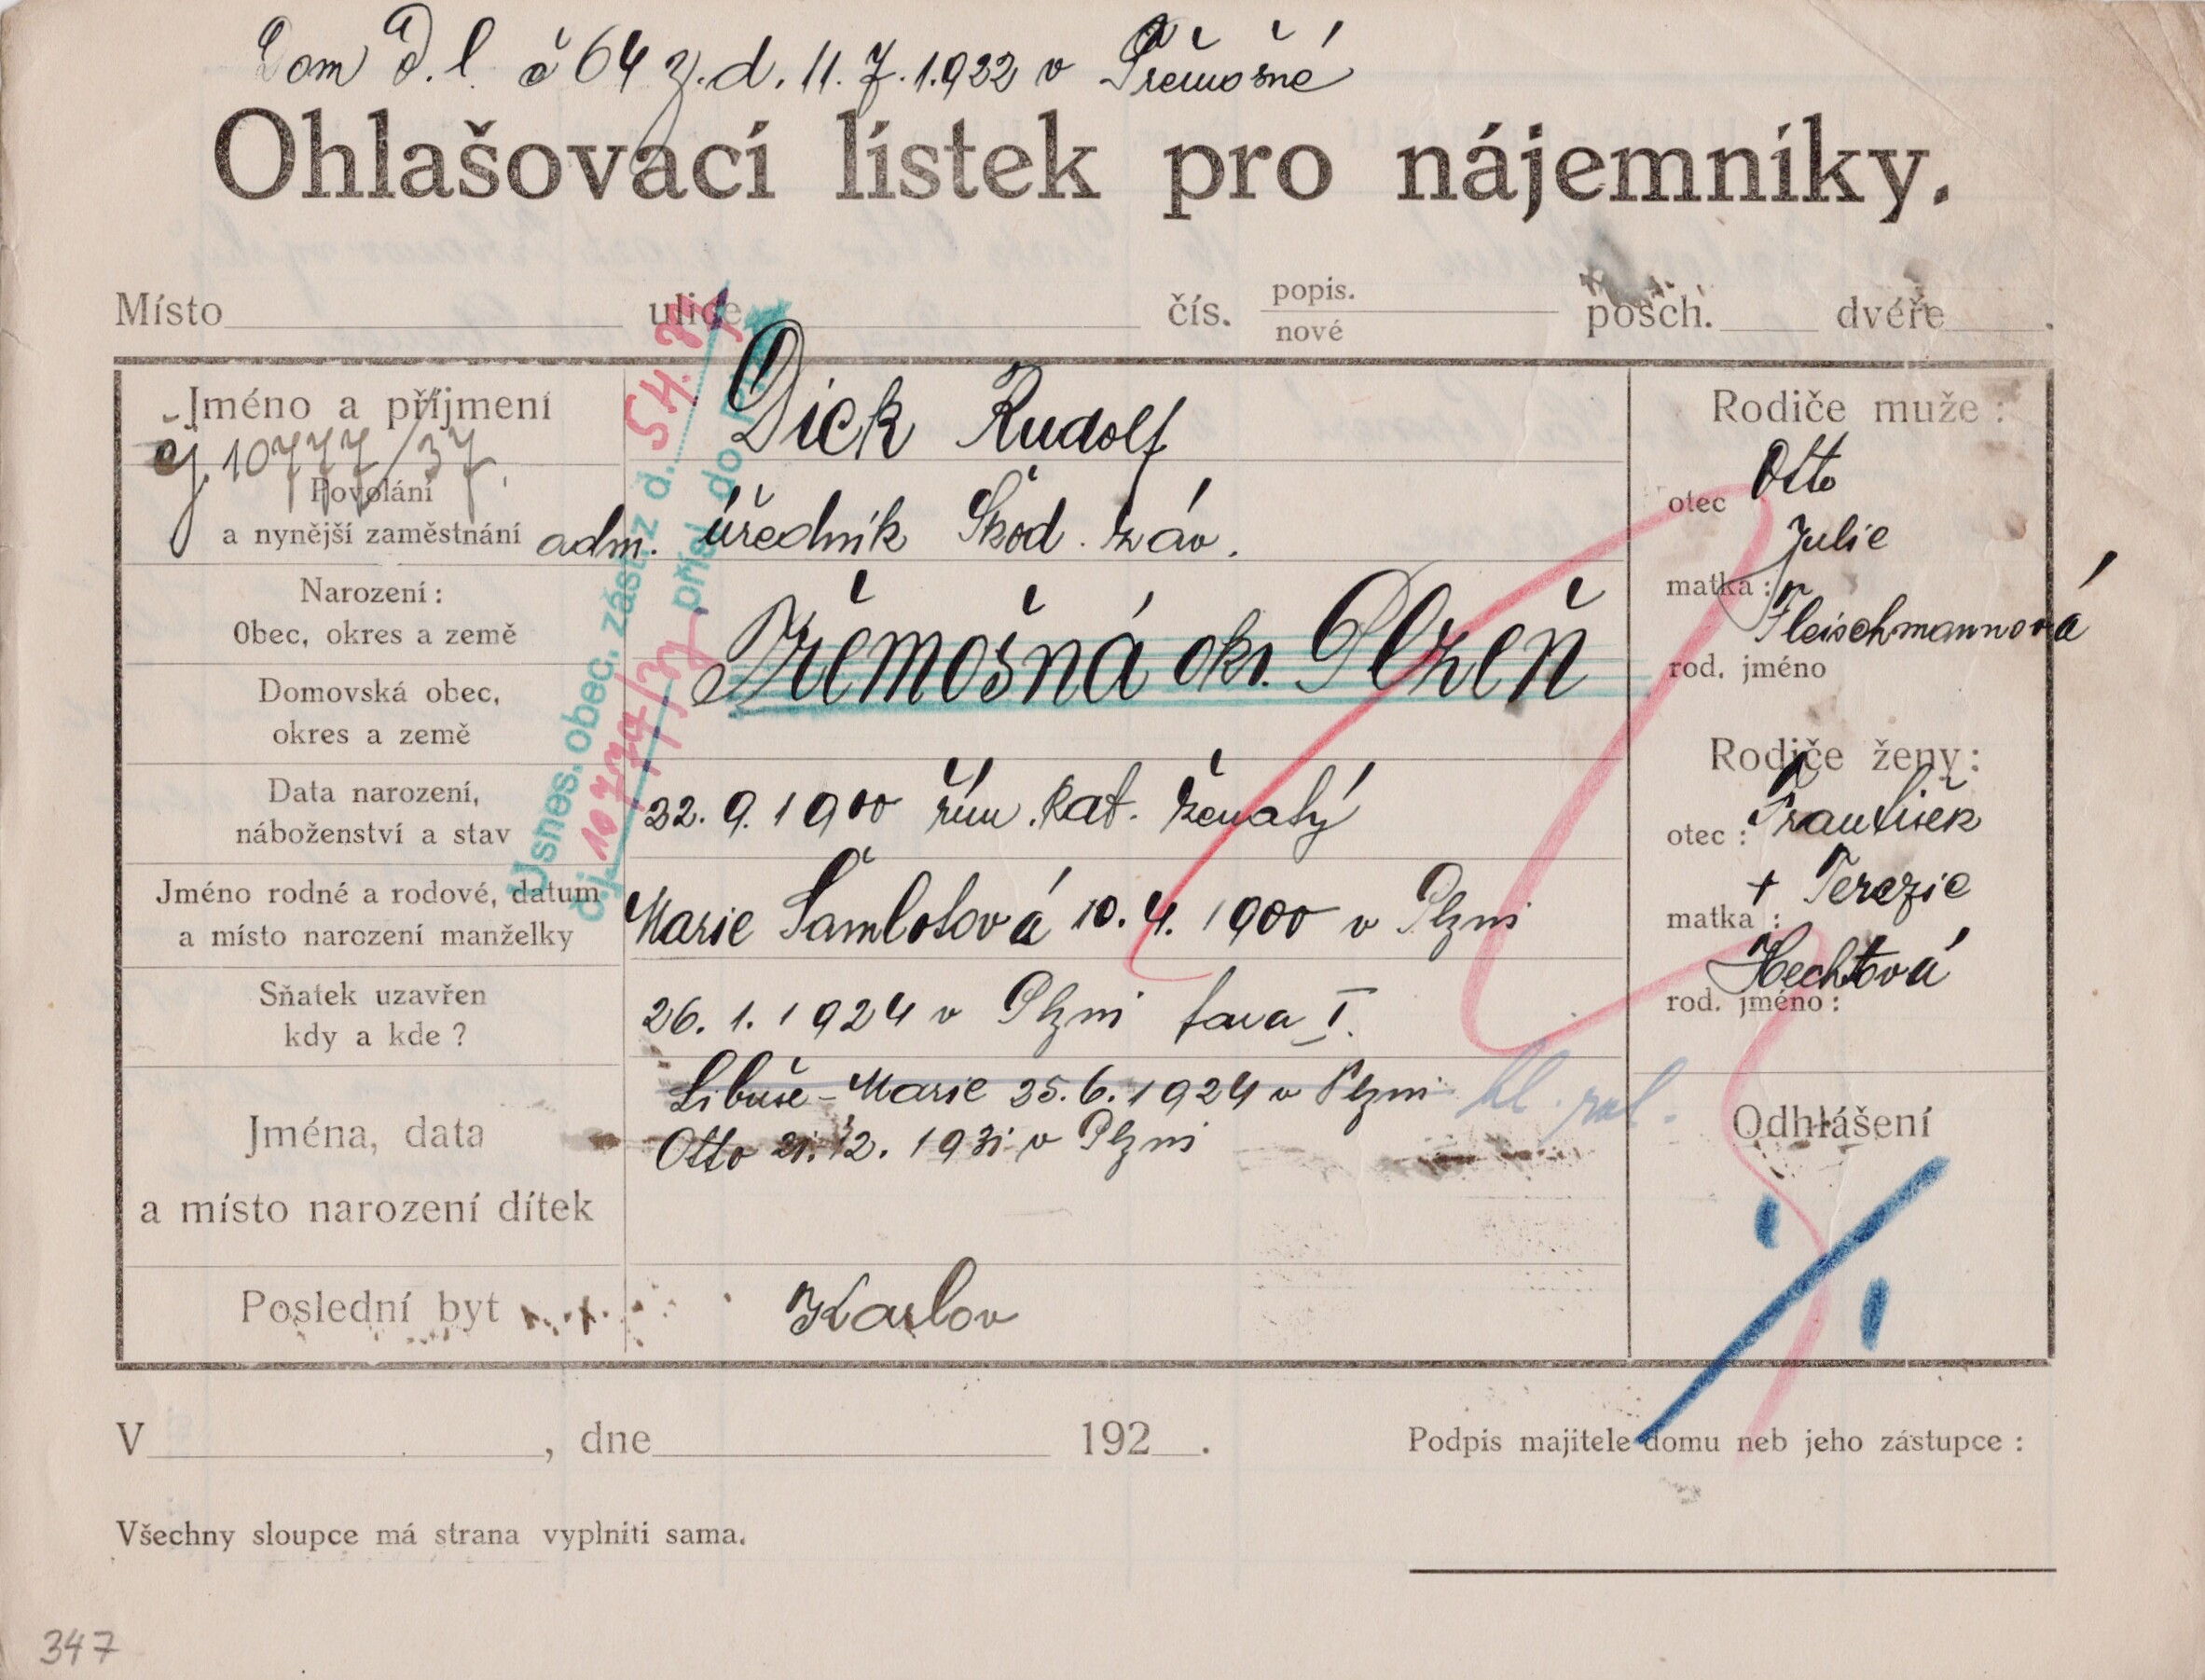 Dom. l. č 64 z. d. 11. 7. 1922 v Třemošné
Ohlašovací lístek pro nájemníky.
Místo ulice čís. popis. nové posch. dvéře .
Jméno a příjmení
čj. 10777/37.
Dick Rudolf
Povolání
a nynější zaměstnání
adm. úředník Škod. záv.
Narození:
Obec, okres a země
Třemošná okr. Plzeň
Domovská obec,
okres a země
Data narození,
náboženství a stav
22. 9. 1900 řím. kat. ženatý
Jméno rodné a rodové, datum
a místo narození manželky
Marie Šamlotová 10. 4. 1900 v Plzni
Sňatek uzavřen
kdy a kde?
26. 1. 1924 v Plzni fara I.
Jména, data
a místo narození dítek
Libuše-Marie 25. 6. 1924 v Plzni
Otto 21. 12. 1931 v Plzni
Poslední byt
Karlov
Usnes. obec. zast. z d.
č. j. 10777/37 přísl. do
Rodiče muže:
otec Otto
matka: Julie
Fleischmannová
rod. jméno
Rodiče ženy:
otec: František
matka: + Terezie
Hechtová
rod. jméno:
Odhlášení
V , dne 192 .
Podpis majitele domu neb jeho zástupce:
Všechny sloupce má strana vyplniti sama.
347